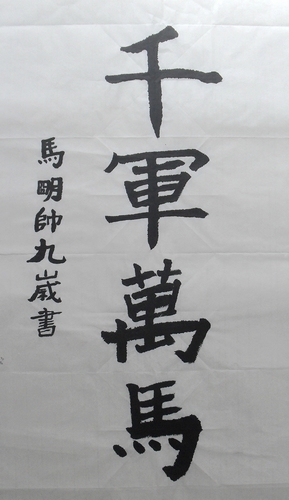 千軍萬馬
馬明帥九歲書